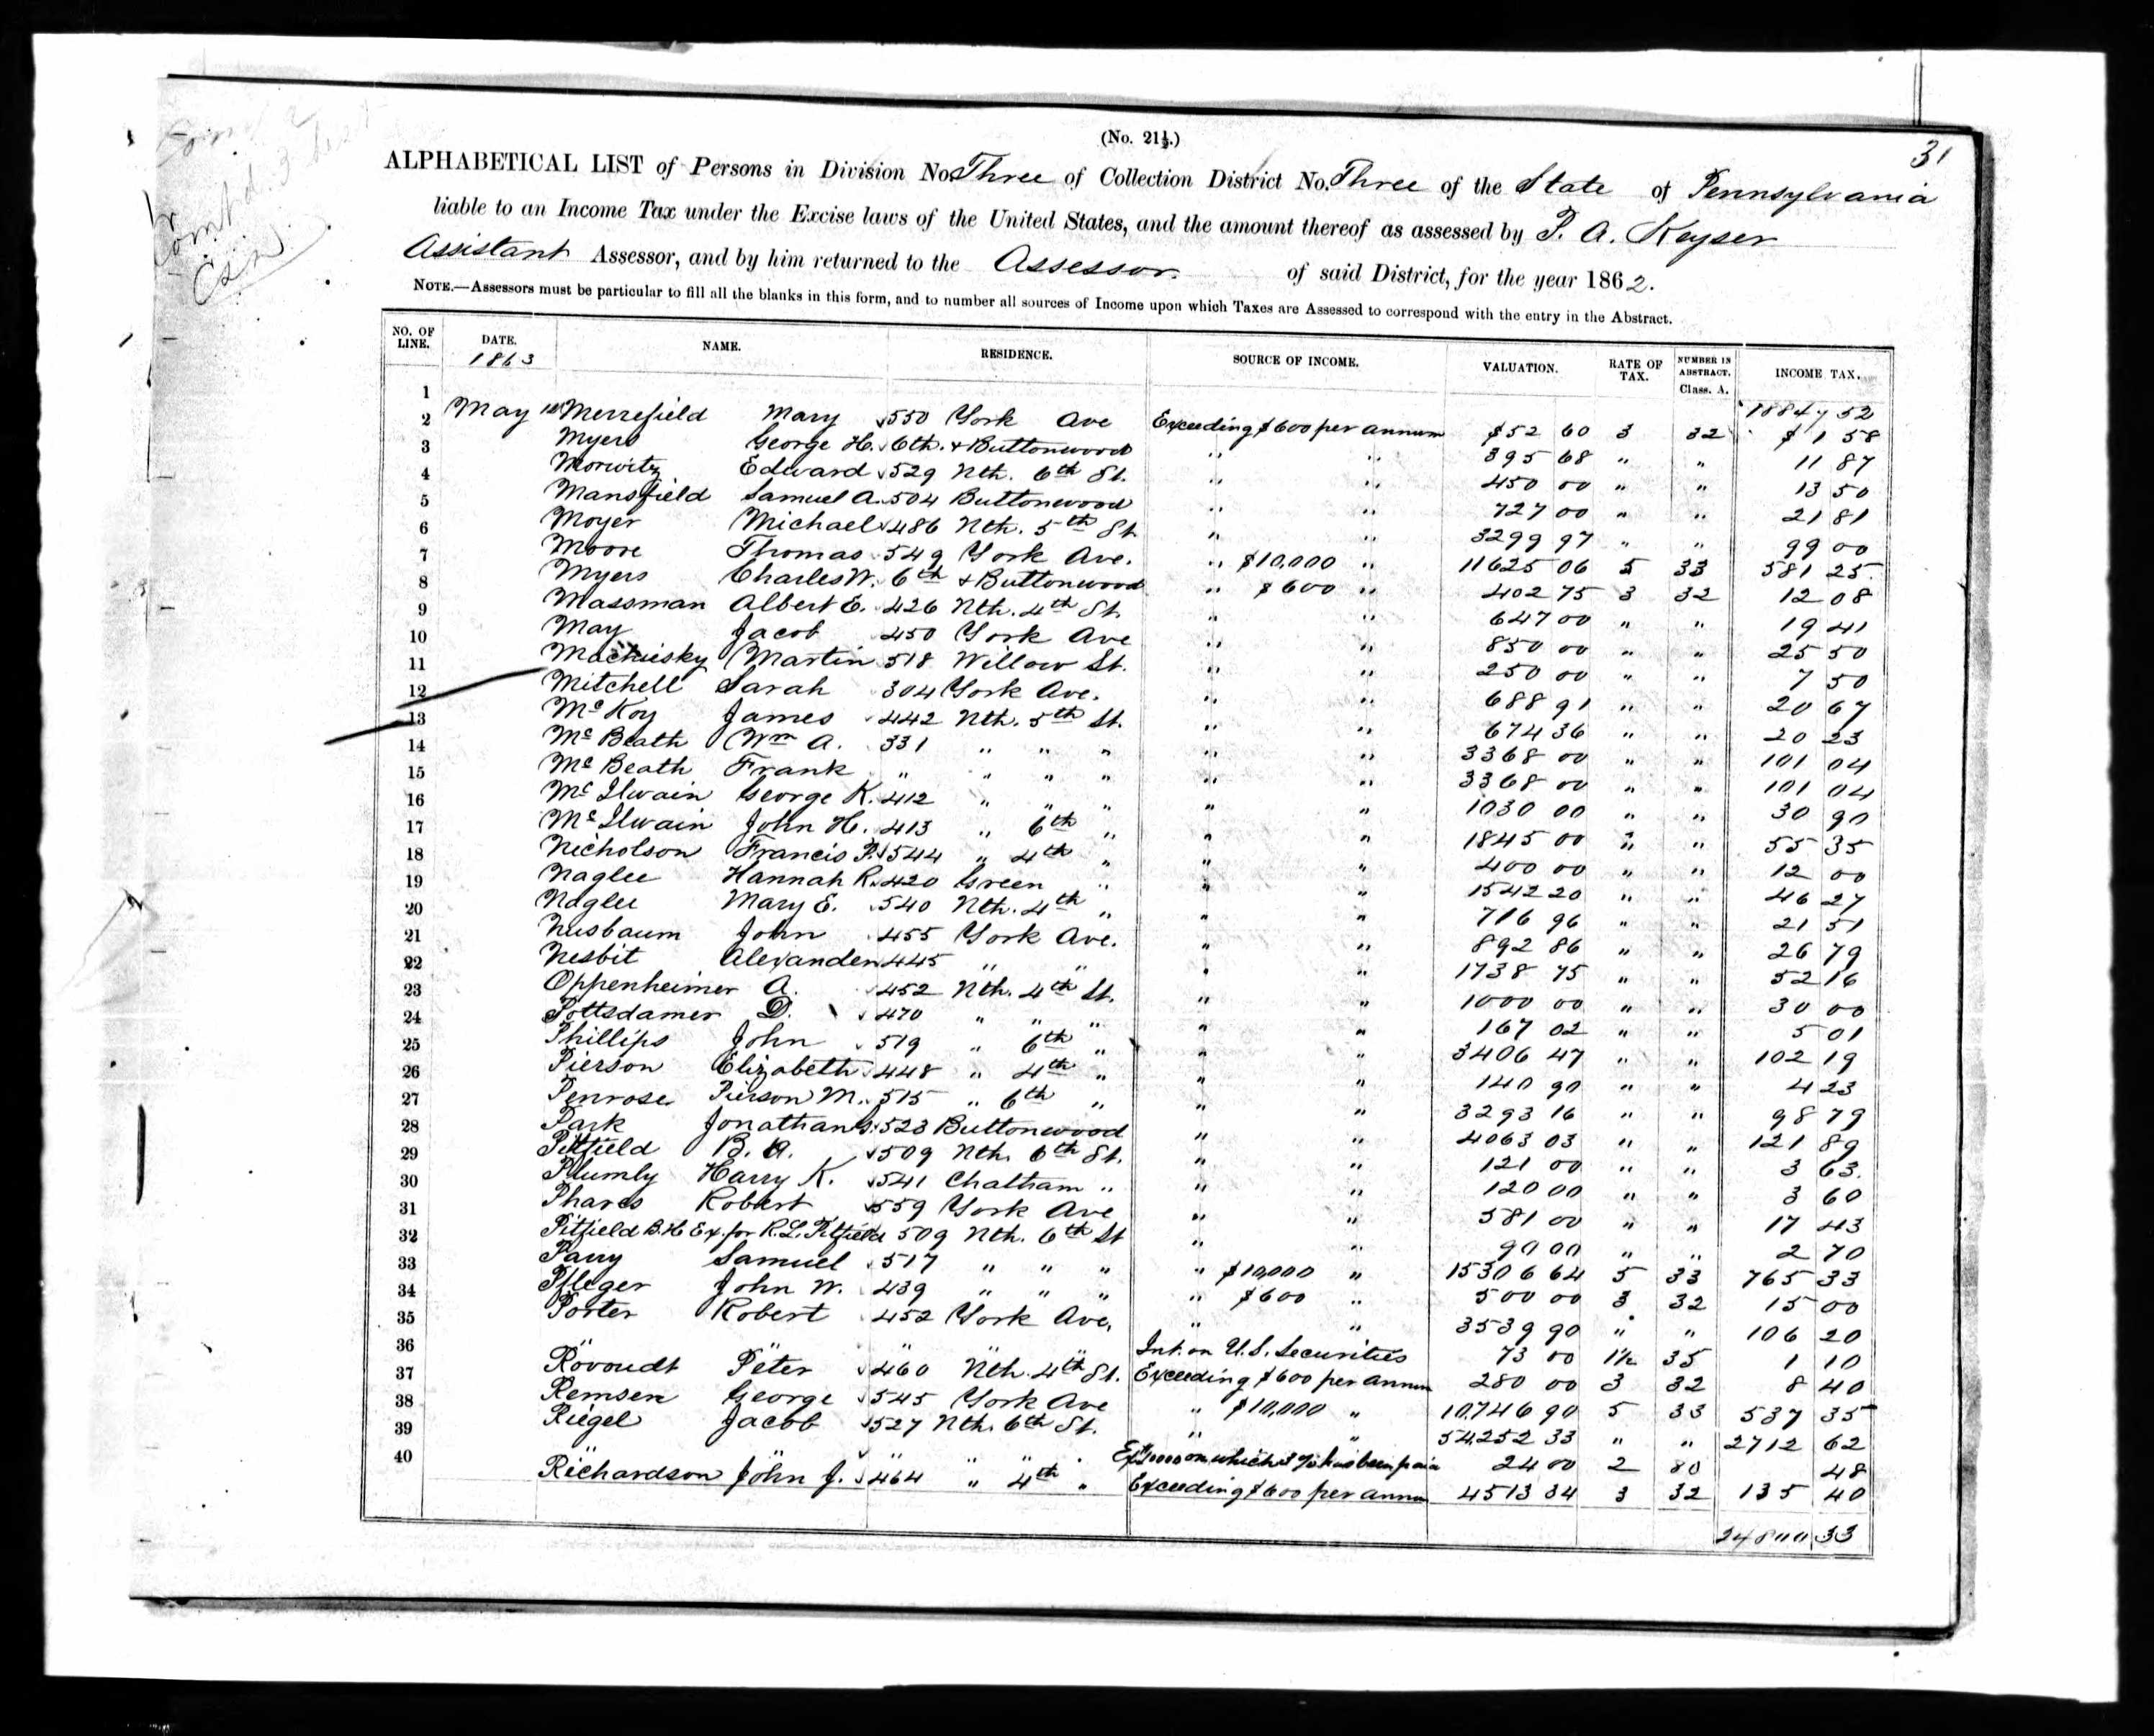 31
(No. 21½.)
ALPHABETICAL LIST of Persons in Division No. Three of Collection District No. Three of the State of Pennsylvania
liable to an Income Tax under the Excise laws of the United States, and the amount thereof as assessed by P. A. Keyser
Assistant Assessor, and by him returned to the Assessor. of said District, for the year 1862.
NOTE.—Assessors must be particular to fill all the blanks in this form, and to number all sources of Income upon which Taxes are Assessed to correspond with the entry in the Abstract.
NO. OF LINE. DATE. 1863 NAME. RESIDENCE. SOURCE OF INCOME. VALUATION. RATE OF TAX. NUMBER IN ABSTRACT. Class. A. INCOME TAX.
18847 52
1 May Merrefield Mary 550 York Ave Exceeding $600 per annum $52 60 3 32 $1 58
2 Myers George H. 6th. & Buttonwood " " 395 68 " " 11 87
3 Morwitz Edward 529 Nth. 6th St. " " 450 00 " " 13 50
4 Mansfield Samuel A. 504 Buttonwood " " 727 00 " " 21 81
5 Moyer Michael 486 Nth. 5th St. " " 3299 97 " " 99 00
6 Moore Thomas 549 York Ave. " $10,000 " 11625 06 5 33 581 25
7 Myers Charles W. 6th & Buttonwood " $600 " 402 75 3 32 12 08
8 Massman Albert E. 426 Nth. 4th St. " " 647 00 " " 19 41
9 May Jacob 450 York Ave " " 850 00 " " 25 50
10 Martin 518 Willow St. " " 250 00 " " 7 50
11 Mitchell Sarah 304 York Ave. " " 688 91 " " 20 67
12 McKoy James 442 Nth. 5th St. " " 674 36 " " 20 23
13 McBeath Wm A. 331 " " " " " 3368 00 " " 101 04
14 McBeath Frank " " " " " " 3368 00 " " 101 04
15 McIlwain George K. 412 " " " " " 1030 00 " " 30 90
16 McIlwain John H. 413 " 6th " " " 1845 00 " " 55 35
17 Nicholson Francis P. 544 " 4th " " " 400 00 " " 12 00
18 Naglee Hannah R. 420 Green " " " 1542 20 " " 46 27
19 Naglee Mary E. 540 Nth. 4th " " " 716 96 " " 21 51
20 Nusbaum John 455 York Ave. " " 892 86 " " 26 79
21 Nesbit Alexander 445 " " " " 1738 75 " " 52 16
22 Oppenheimer A. 452 Nth. 4th St. " " 1000 00 " " 30 00
23 Pottsdamer D. 470 " " " " " 167 02 " " 5 01
24 Phillips John 519 " 6th " " " 3406 47 " " 102 19
25 Pierson Elizabeth 448 " 4th " " " 140 90 " " 4 23
26 Penrose Pierson M. 515 " 6th " " " 3293 16 " " 98 79
27 Park Jonathan 523 Buttonwood " " 4063 03 " " 121 89
28 Pitfield B. H. 509 Nth. 6th St. " " 121 00 " " 3 63
29 Plumly Harry K. 541 Chatham " " " 120 00 " " 3 60
30 Phares Robert 559 York Ave " " 581 00 " " 17 43
31 Pitfield B. H Ex. for R. L. Pitfield 509 Nth. 6th St " " 90 00 " " 2 70
32 Parry Samuel 517 " " " " $10,000 " 15306 64 5 33 765 33
33 Pfleger John W. 439 " " " " $600 " 500 00 3 32 15 00
34 Porter Robert 452 York Ave, " " 3539 90 " " 106 20
35 " " " " Int. on U. S. Securities 73 00 1½ 35 1 10
36 Rovoudt Peter 460 Nth. 4th St. Exceeding $600 per annum 280 00 3 32 8 40
37 Remsen George 545 York Ave " $10,000 " 10,746 90 5 33 537 35
38 Riegel Jacob 527 Nth. 6th St. " " 54,252 33 " " 2712 62
39 " " " " on which 3% has been paid 24 00 2 80 48
40 Richardson John J. 464 " 4th " Exceeding $600 per annum 4513 34 3 32 135 40
33